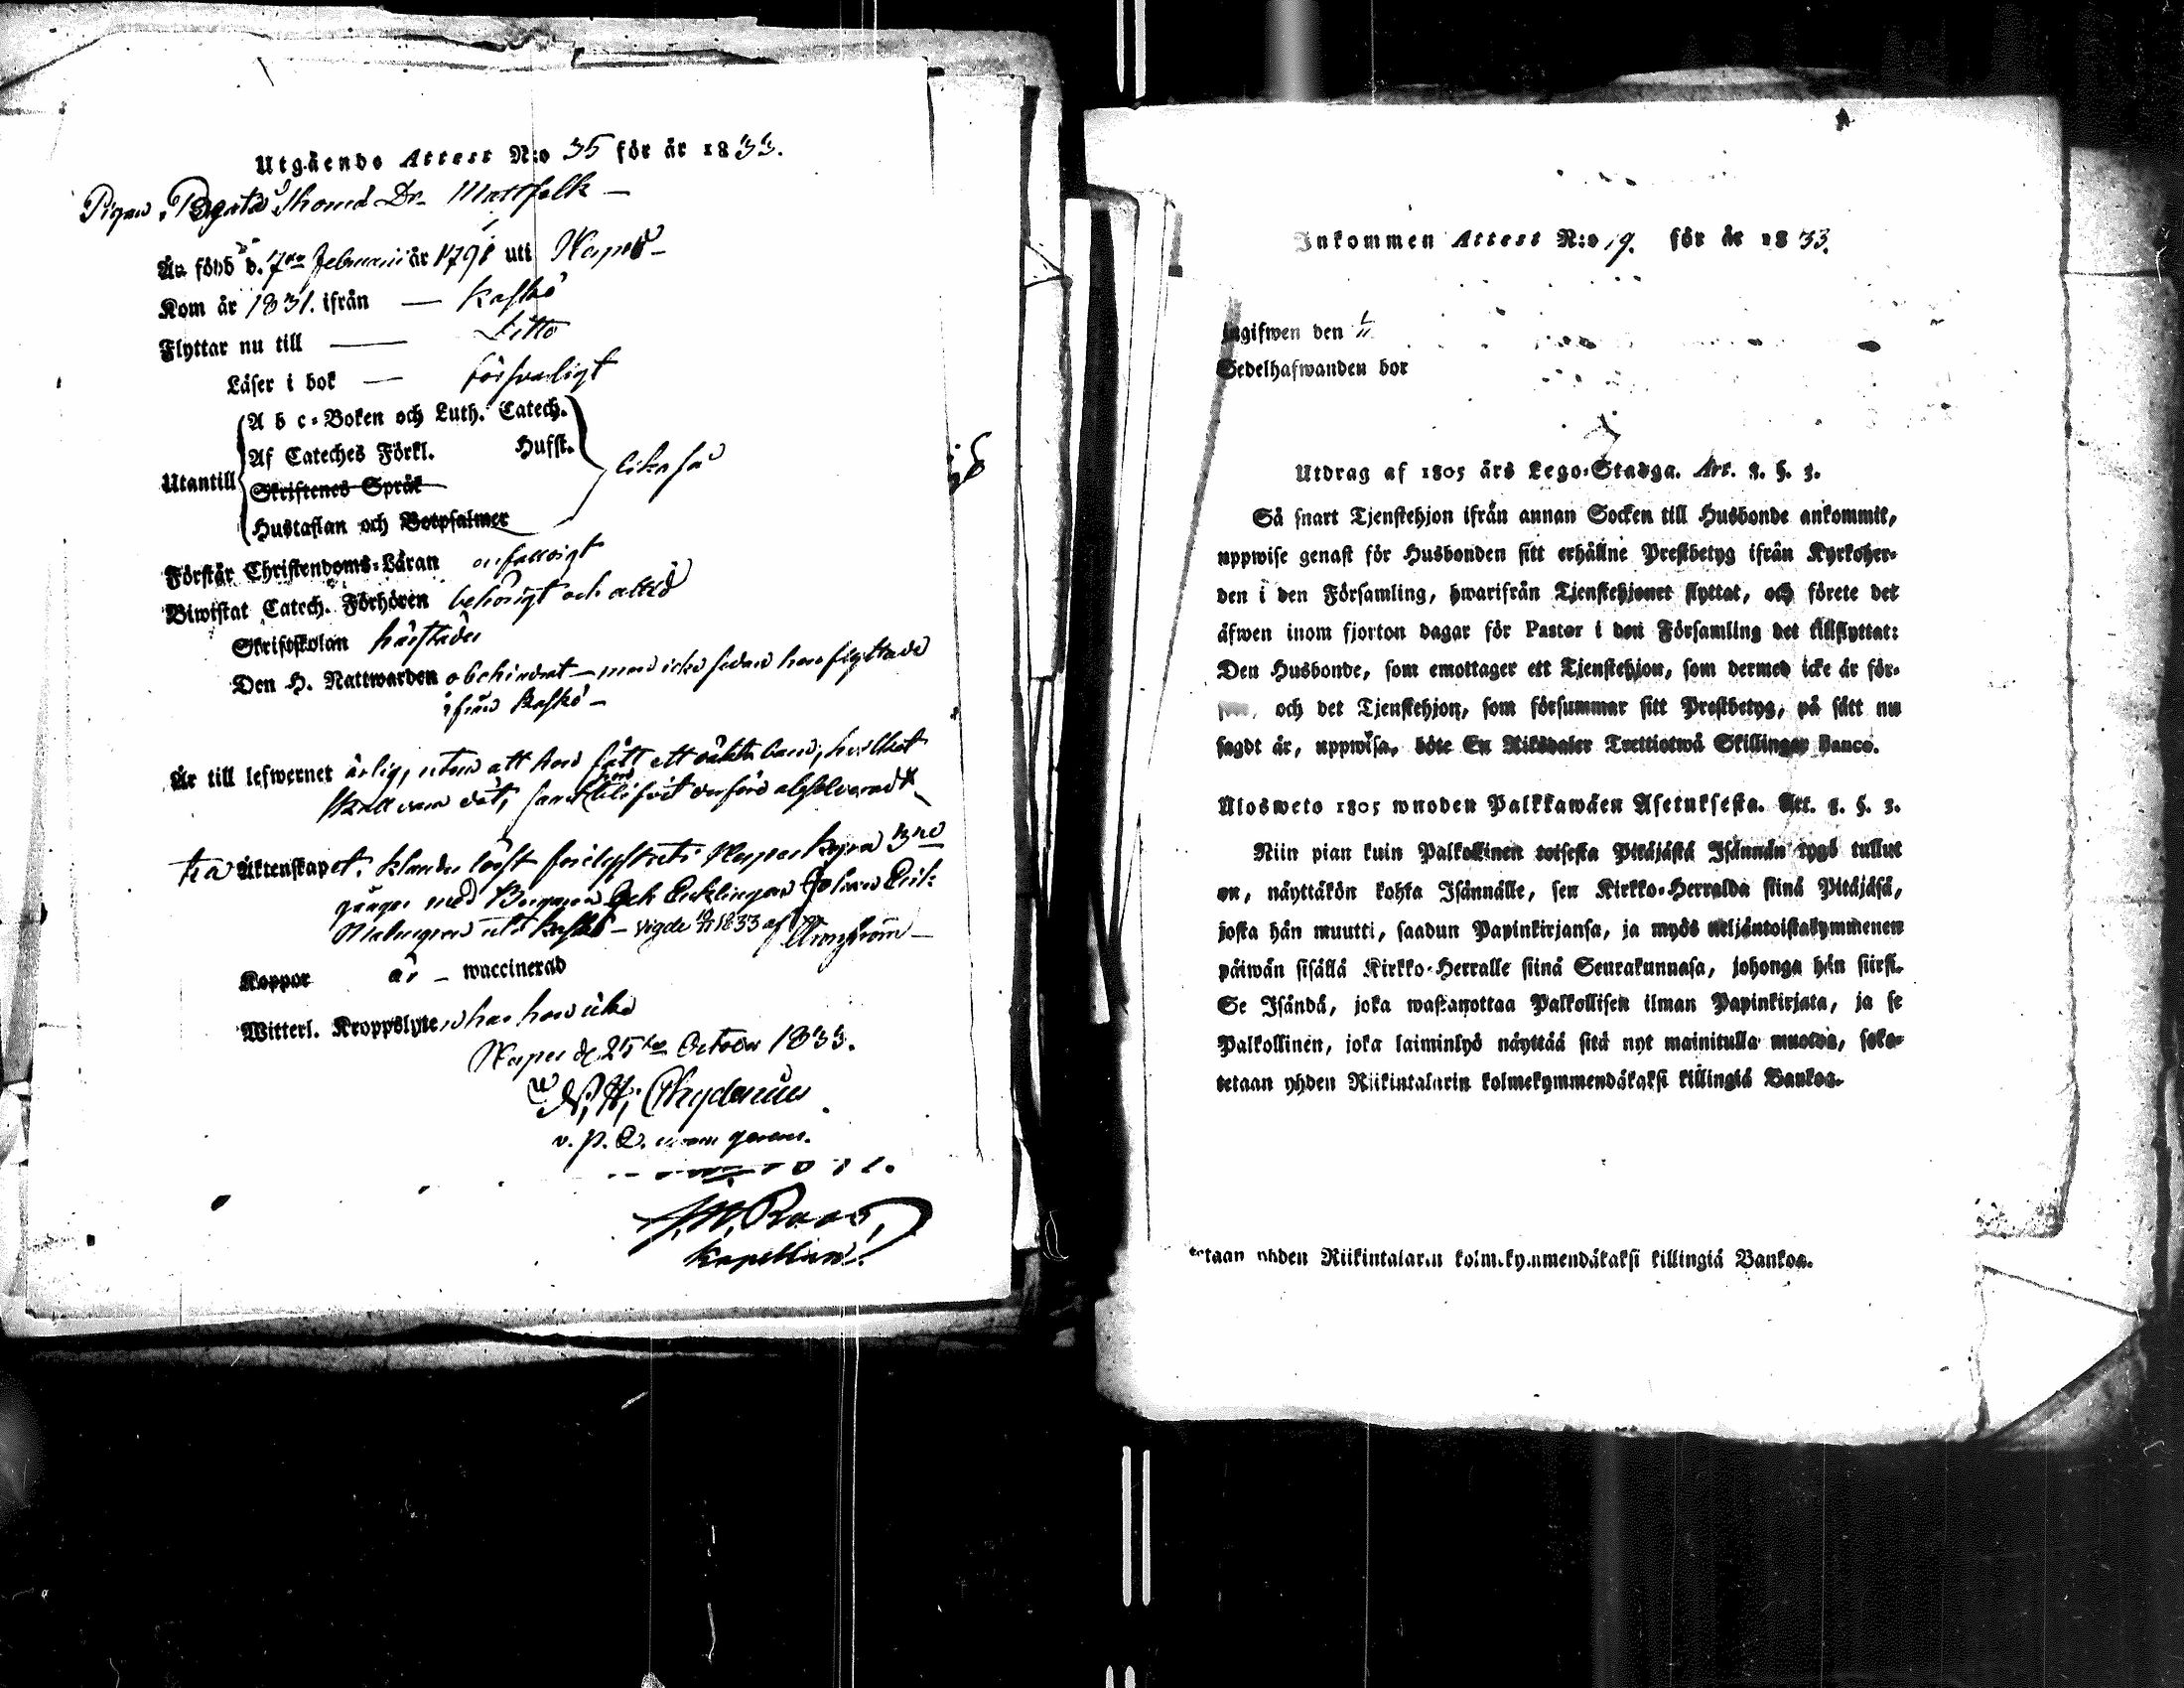 Utgående Attest N:o 35 för år 1833.
Pigan Beata Thomæ Dr. Mattfolk —
Är född d. 7de Februari år 1791 uti Nerpes —
Kom år 1831. ifrån — Kaskö
Flyttar nu till — Ditto
Läser i bok — försvarligt
A b c-Boken och Luth. Catech.
Af Cateches Förkl. Husst.
Utantill
likaså
Skriftenes Språk
Hustaflan och Botpsalmer
Förstår Christendoms-Läran enfalldigt
Biwistat Catech. Förhören behörigt och alltid
Skriftskolan härstädes
Den H. Nattwarden obehindrat — men icke sedan hon flyttade
ifrån Kaskö —
Är till lefwernet ärlig, utom att hon fått ett oäkta barn, hvilket
skall vara dödt, samt hon blifvit derföre absolverad
till Äktenskapet. klander löst förelyst uti Nerpes kyrka 3ne
gånger med Borgaren och Enklingen Johan Erik
Malmgren uti Kaskö — vigde 1833 af
Koppor är — waccinerad
Witterl. Kroppslyten har hon icke
Nerpes d. 25te October 1833.
N. H. Chydenius
v. p.
J. M. Roos,
Kapellan.
Inkommen Attest N:o 19. för år 1833.
Ingifwen den
Sedelhafwanden bor
Utdrag af 1805 års Lego-Stadga. Art. 3. §. 3.
Så snart Tjenstehjon ifrån annan Socken till Husbonde ankommit,
uppwise genast för Husbonden sitt erhållne Prestbetyg ifrån Kyrkoher-
den i den Församling, hwarifrån Tjenstehjonet flyttat, och förete det
äfwen inom fjorton dagar för Pastor i den Församling det tillflyttat:
Den Husbonde, som emottager ett Tjenstehjon, som dermed icke är för-
och det Tjenstehjon, som försummar sitt Prestbetyg, på sätt nu
sagdt är, uppwisa, böte En Riksdaler Trettiotwå Skillingar Banco.
Ulosweto 1805 wuoden Palkkawäen Asetuksesta. Art. 3. §. 3.
Niin pian kuin Palkollinen toisesta Pitäjästä Isännän tygö tullut
on, näyttäkön kohta Isännälle, sen Kirkko-Herralda siinä Pitäjäsä,
josta hän muutti, saadun Papinkirjansa, ja myös neljäntoistakymmenen
päiwän sisällä Kirkko-Herralle siinä Seurakunnasa, johonga hän siirsi.
Se Isändä, joka wastanottaa Palkollisen ilman Papinkirjata, ja se
Palkollinen, joka laiminlyö näyttää sitä nyt mainitulla muotoa, sako-
tetaan yhden Riikintalarin kolmekymmendäkaksi killingiä Bankoa.
tetaan yhden Riikintalarin kolmekymmendäkaksi killingiä Bankoa.